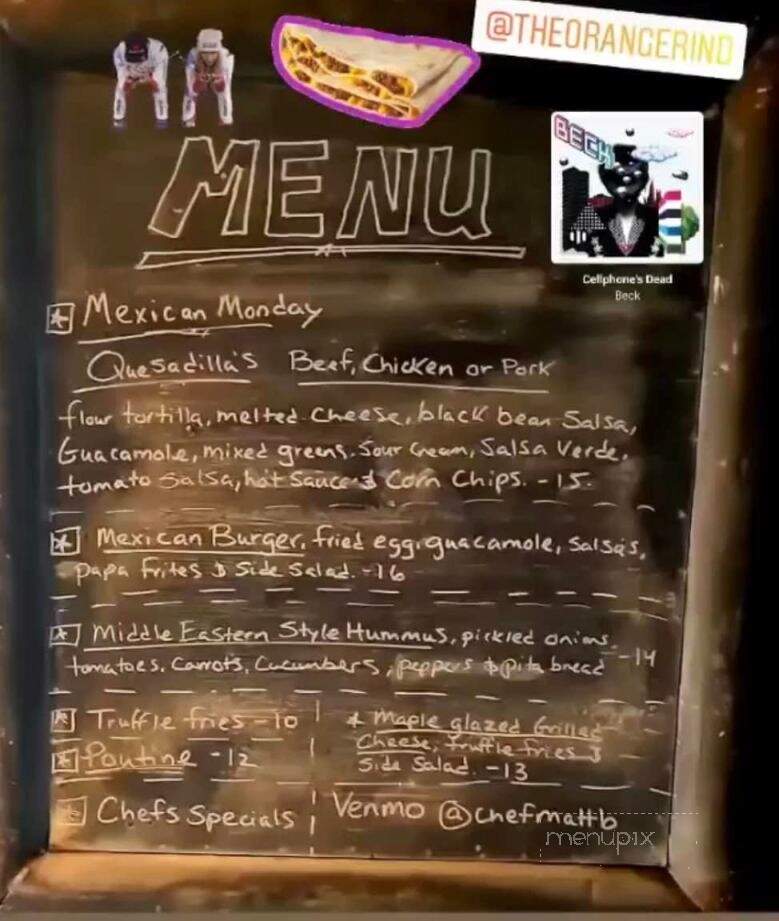 @THEORANGERIND
BECK
MENU
Cellphone's Dead
Beck
Mexican Monday
Quesadilla's Beef, Chicken or Pork
flour tortilla, melted cheese, black bean Salsa,
Guacamole, mixed greens, Sour Cream, Salsa Verde,
tomato Salsa, hot Sauce & Corn Chips. -15-
Mexican Burger, fried egg, guacamole, Salsa's,
papa frites & Side Salad. -16
Middle Eastern Style Hummus, pickled onions
tomatoes, Carrots, Cucumbers, peppers & pita bread -14
Truffle fries -10
Poutine -12
Maple glazed Grilled
Cheese, truffle fries &
Side Salad. -13
Chefs Specials
Venmo @chefmattb
menupix